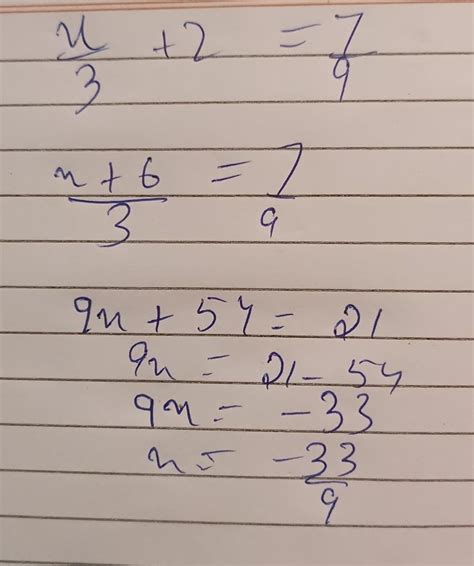 x/3 + 2 = 7/9
x + 6/3 = 7/9
9x + 54 = 21
9x = 21 - 54
9x = -33
x = -33/9